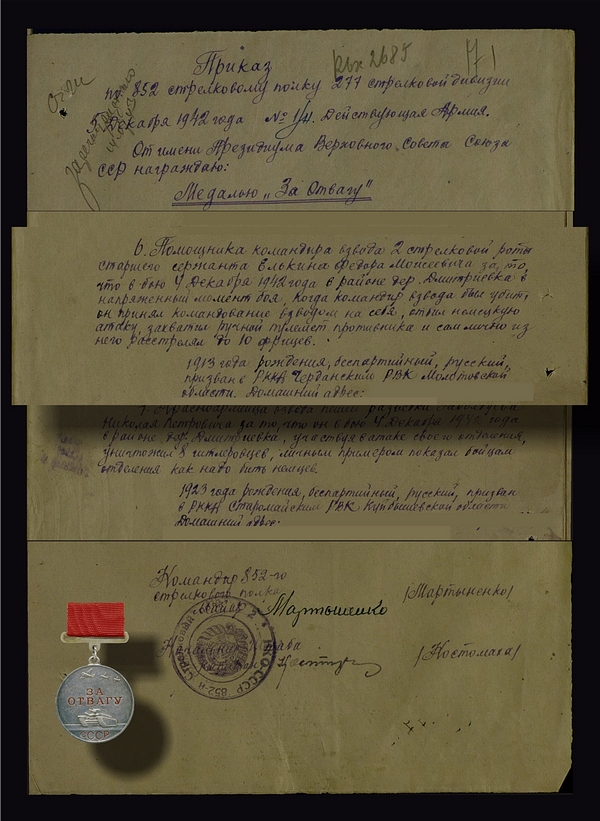 Приказ
квх 2685
71
по 852 стрелковому полку 277 стрелковой дивизии
5 Декабря 1942 года № 14. Действующая Армия.
От имени Президиума Верховного Совета Союза
ССР награждаю:
Медалью „За Отвагу"
6. Помощника командира взвода 2 стрелковой роты
старшего сержанта Елькина Федора Моисеевича за то,
что в бою 4 Декабря 1942 года в районе дер. Дмитриевка в
напряженный момент боя, когда командир взвода был убит,
он принял командование взводом на себя, отбил немецкую
атаку, захватил ручной пулемет противника и сам лично из
него расстрелял до 10 фрицев.
1913 года рождения, беспартийный, русский,
призван в РККА Чердынским РВК Молотовской
области. Домашний адрес:
7. Красноармейца взвода пешей разведки
Николая Петровича за то, что он в бою 4 Декабря 1942 года
в районе дер. Дмитриевка, участвуя в атаке своего отделения,
уничтожил 8 гитлеровцев, личным примером показал бойцам
отделения как надо бить немцев.
1923 года рождения, беспартийный, русский, призван
в РККА Старомайнским РВК Куйбышевской области
Домашний адрес:
Командир 852-го
стрелкового полка
майор Мартыненко /Мартыненко/
Начальник штаба
капитан /Костомаха/
ЗА
ОТВАГУ
СССР